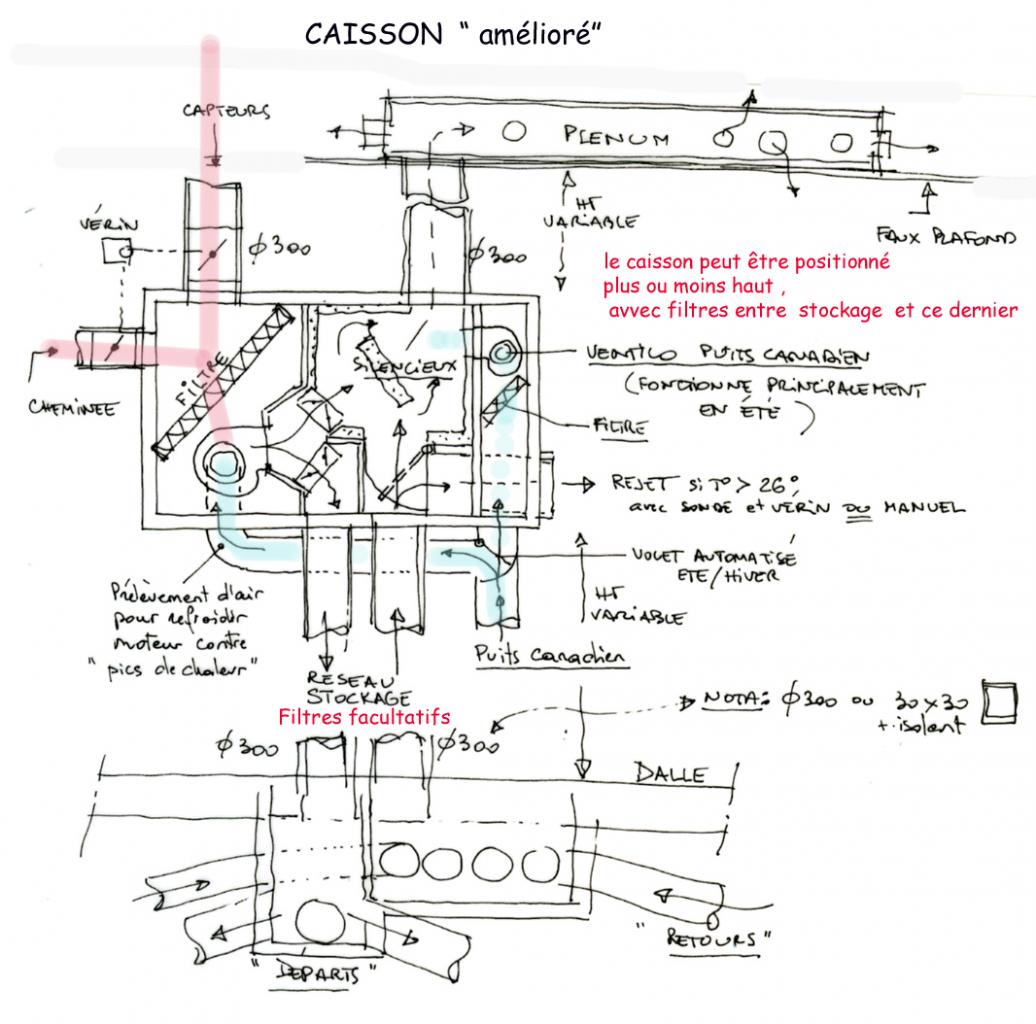 CAISSON " amélioré"
CAPTEURS
PLENUM
VÉRIN
ϕ300
ϕ300
HT
VARIABLE
FAUX PLAFOND
le caisson peut être positionné
plus ou moins haut ,
avvec filtres entre stockage et ce dernier
FILTRE
SILENCIEUX
CHEMINEE
VENTILO PUITS CANADIEN
(FONCTIONNE PRINCIPALEMENT
EN ÉTÉ )
FILTRE
REJET si T° > 26°,
avec SONDE et VÉRIN OU MANUEL
VOLET AUTOMATISÉ
ETE/HIVER
HT
VARIABLE
Prélèvement d'air
pour refroidir
moteur contre
"pics de chaleur"
Puits Canadien
RESEAU
STOCKAGE
Filtres facultatifs
NOTA: ϕ300 ou 30x30
+ isolant
ϕ300
ϕ300
DALLE
"RETOURS"
"DEPARTS"